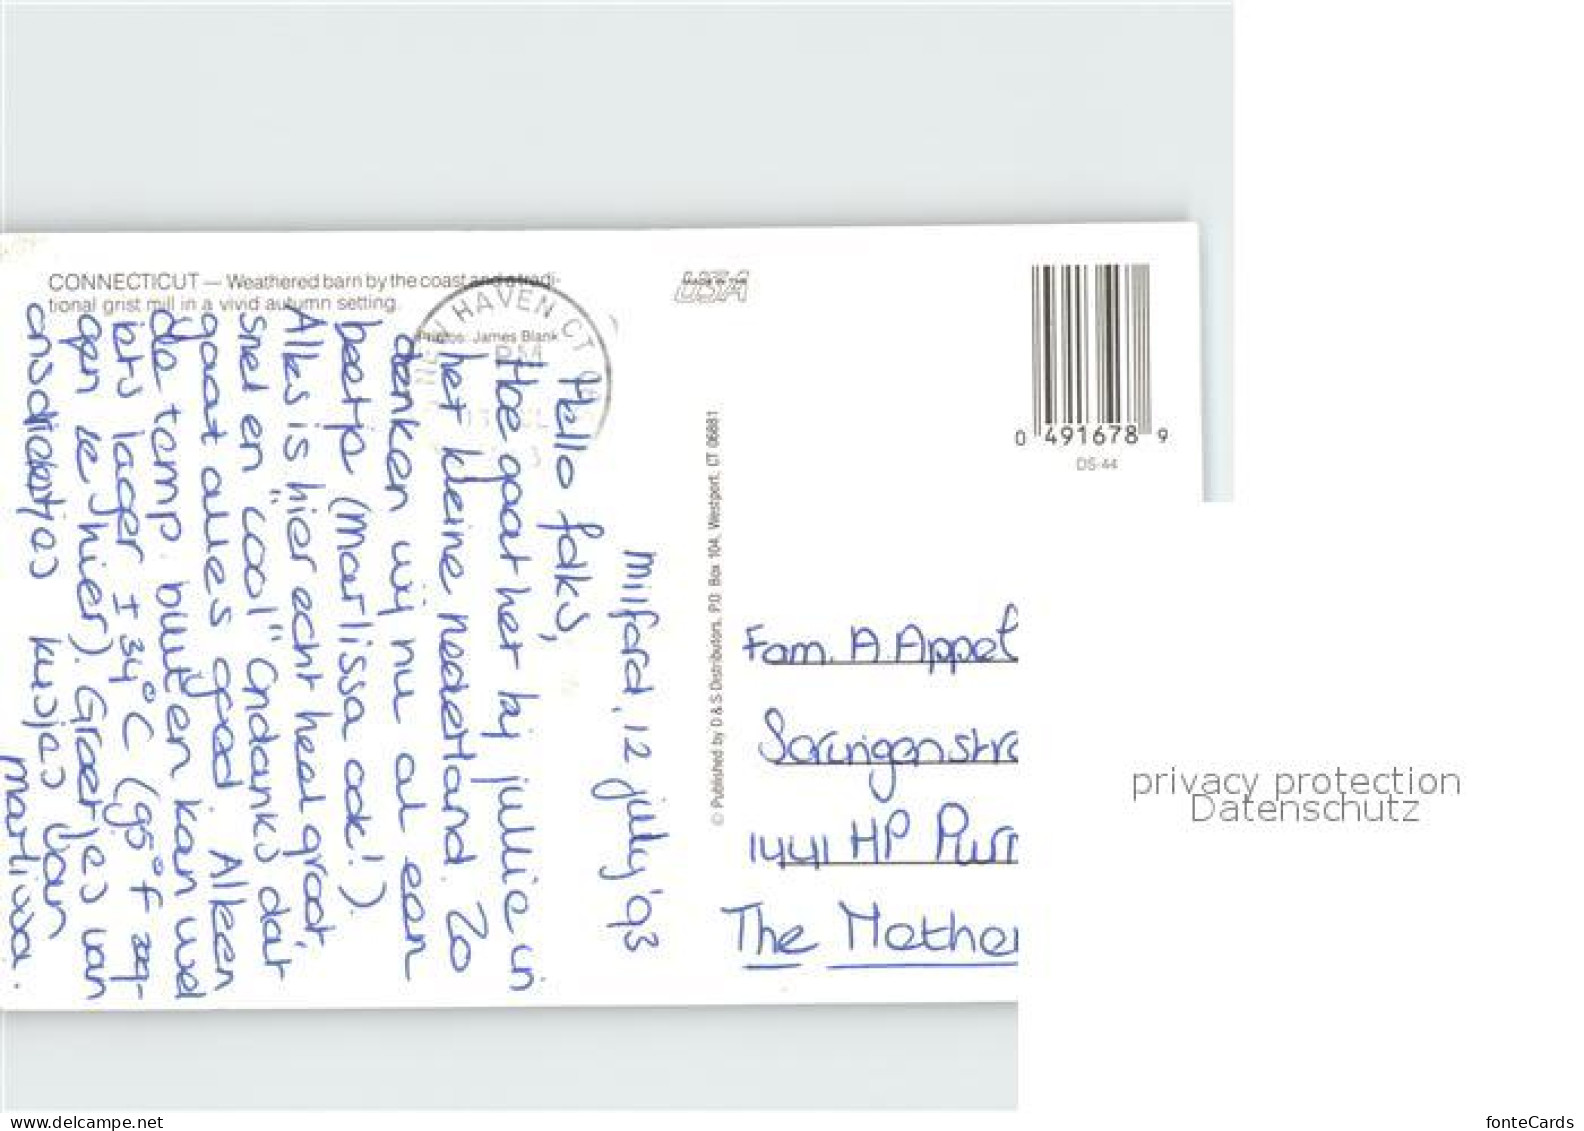 CONNECTICUT — Weathered barn by the coast and a tradi-
tional grist mill in a vivid autumn setting.
Photos: James Blank
HAVEN CT
PM
MADE IN THE
USA
milford, 12 july '93
Hello folks,
Hoe gaat het bij jullie in
het kleine nederland. Zo
denken wij nu al een
beetje (Marlissa ook!).
Alles is hier echt heel groot
snel en "cool" Ondanks dat
gaat alles goed. Alleen
de temp. buiten kan wel
iets lager ± 34°C (95°F
gen ze hier). Groetjes van
ons drietjes kusjes van
Martissa.
© Published by D & S Distributors, P.O. Box 104, Westport, CT 06881
0 491678 9
DS-44
Fam. A. Appel
1441 HP Purr
The Nether
privacy protection
Datenschutz
www.delcampe.net
fonteCards